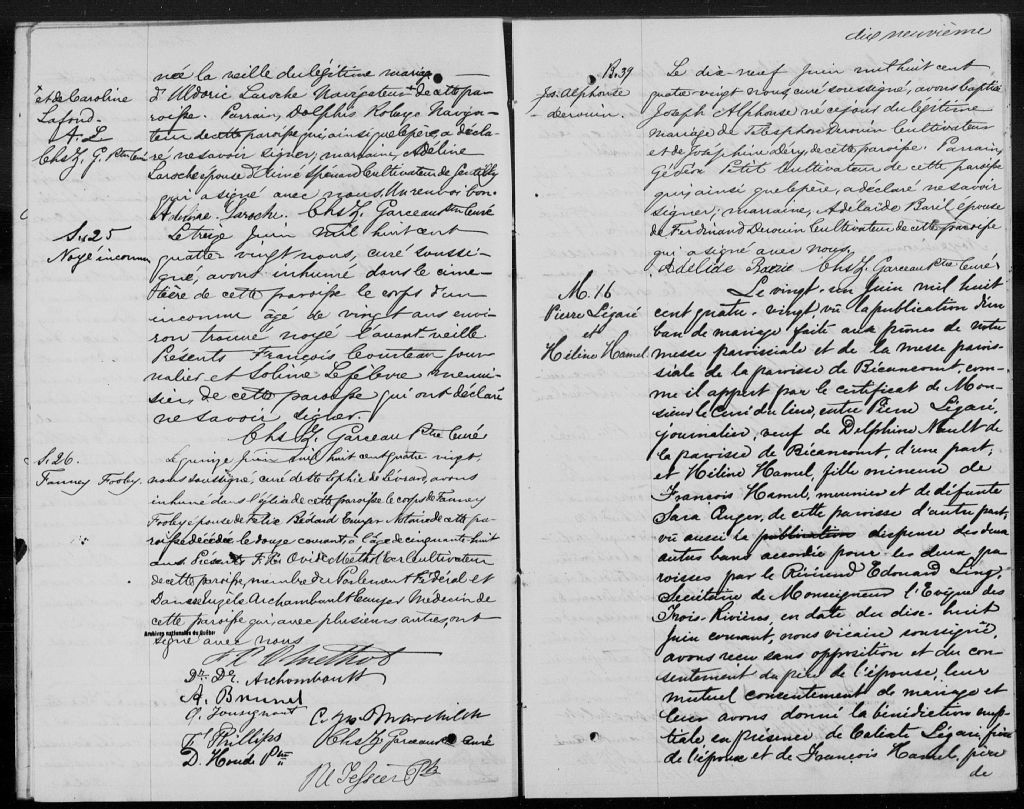 née la veille du légitime mariage
d'Uldoric Laroche Navigateur + de cette pa-
roisse. Parrain, Dolphis Naviga-
teur de cette paroisse qui ainsi que le père, a décla-
ré, ne savoir signer, marraine, Adéline
Laroche épouse d' Cultivateur de
qui a signé avec nous, Un renvoi bon.
Laroche. Chs Z. Garceau Ptre Curé
+ et de Caroline
Lafond.
A. L
Chs Z. G. Ptre Curé
S. 25
Noyé inconnu
Le treize Juin mil huit cent
quatre vingt nous, curé soussi-
gné, avons inhumé dans le cime-
tière de cette paroisse le corps d'un
inconnu âgé de vingt ans envi-
ron trouvé noyé l'avant veille
Présents François Courteau jour-
nalier et Lefebvre menui-
sier, de cette paroisse qui ont déclaré
ne savoir signer.
Chs Z. Garceau Ptre Curé
S. 26.
Fanney Fooley
Le quinze Juin mil huit cent quatre vingt,
nous soussigné, curé de Ste Sophie de Lévrard, avons
inhumé dans l'église de cette paroisse le corps de Fanney
Fooley épouse de Félix Bédard Ecuyer Notaire de cette pa-
roisse décédée le douze courant à l'âge de cinquante huit
ans. Présents F. X. Ovide Méthot Ecr Cultivateur
de cette paroisse, membre du Parlement Fédéral et
Archambault Ecuyer Médecin de
cette paroisse qui, avec plusieurs autres, ont
Archives nationales du Québec
signé avec nous
Methot
Dr. Archambault
A. Brunel
Tousignant
C. Marchildon
Phillips
Chs Z. Garceau Ptre Curé
D. Houde Ptre
Tessier Ptre
dix neuvième
B. 39
Js. Alphonse
Derouin.
Le dix neuf Juin mil huit cent
quatre-vingt nous curé soussigné, avons baptisé
Joseph Alphonse né ce jour du légitime
mariage de Télesphore Derouin Cultivateur
et de Joséphine Déry, de cette paroisse. Parrain,
Gédéon Petit Cultivateur de cette paroisse
qui, ainsi que le père, a déclaré ne savoir
signer; marraine, Adélaïde Baril épouse
de Ferdinand Derouin Cultivateur de cette paroisse
qui a signé avec nous,
Chs Z. Garceau Ptre Curé
M. 16
Pierre Légaré
et
Héline Hamel
Le vingt-un Juin mil huit
cent quatre-vingt vû la publication d'un
ban de mariage faite aux prônes de notre
messe paroissiale et de la messe parois-
siale de la paroisse de Bécancourt, com-
me il appert par le certificat de Mon-
sieur le Curé du lieu, entre Pierre Légaré,
journalier, veuf de Delphine Nault de
la paroisse de Bécancourt, d'une part;
et Héline Hamel, fille mineure de
François Hamel, meunier et de défunte
Sara Auger, de cette paroisse d'autre part,
vû aussi la publication dispense des deux
autres bans accordée pour les deux pa-
roisses par le Révérend Edouard Ling,
Secrétaire de Monseigneur l'Evêque des
Trois-Rivières, en date du dix-huit
Juin courant, nous vicaire soussigné,
avons reçu sans opposition et du con-
sentement du père de l'épouse, leur
mutuel consentement de mariage et
leur avons donné la bénédiction nup-
tiale en présence de Légaré, frère
de l'époux et de François Hamel, père
de